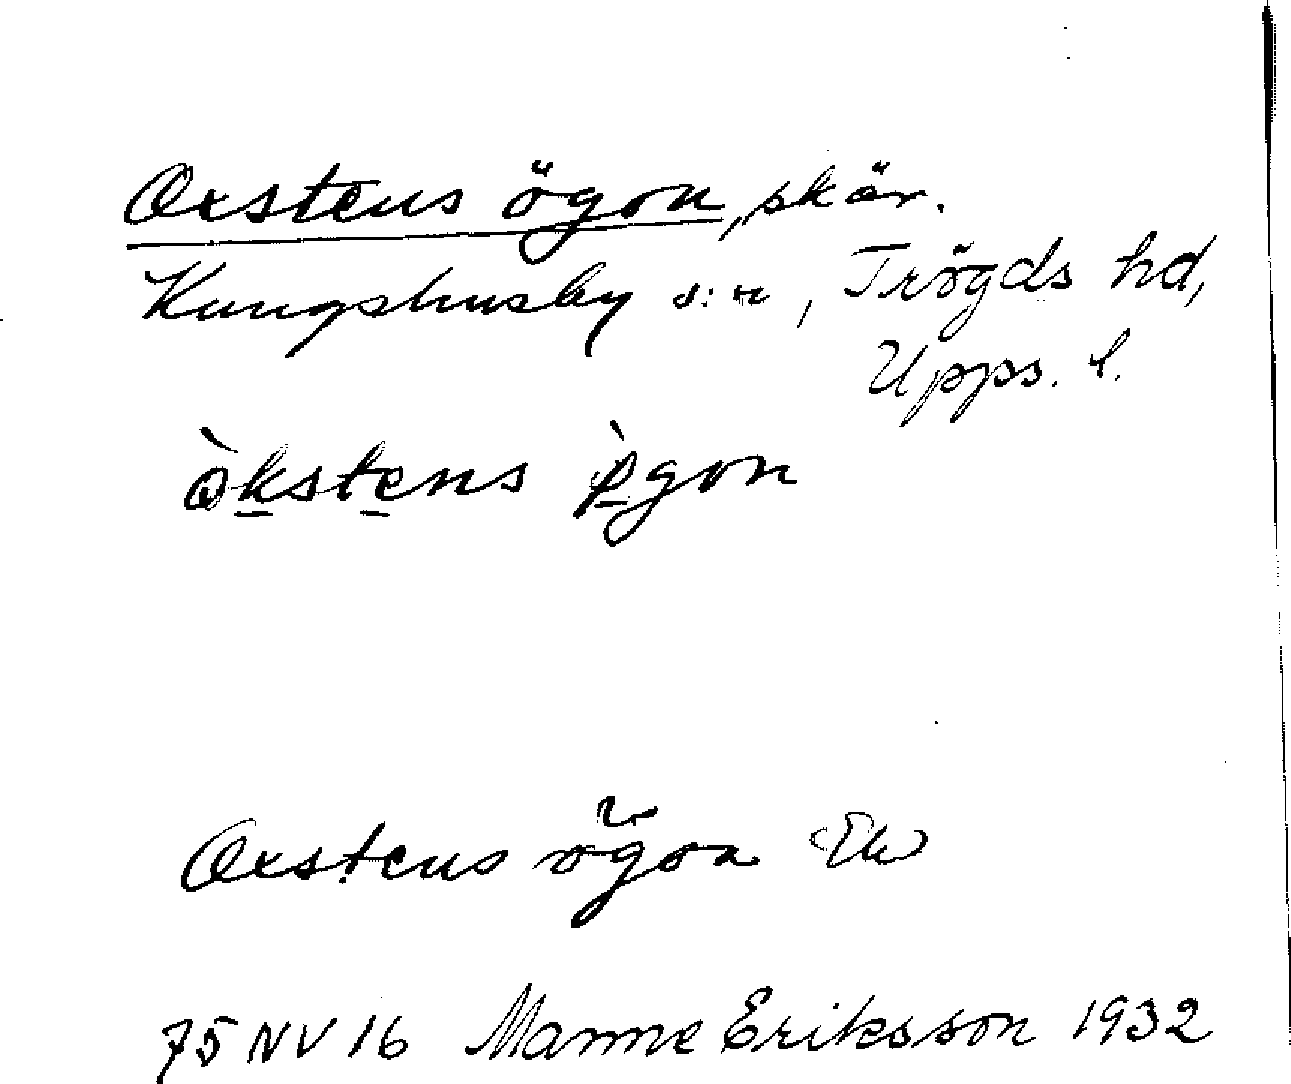 Oxstens ögon, skär.
Kungshusby s:n, Trögds hd,
Upps. l.
òkstens ø̀gon
Oxstens ögon Ek
75 NV 16 Manne Eriksson 1932